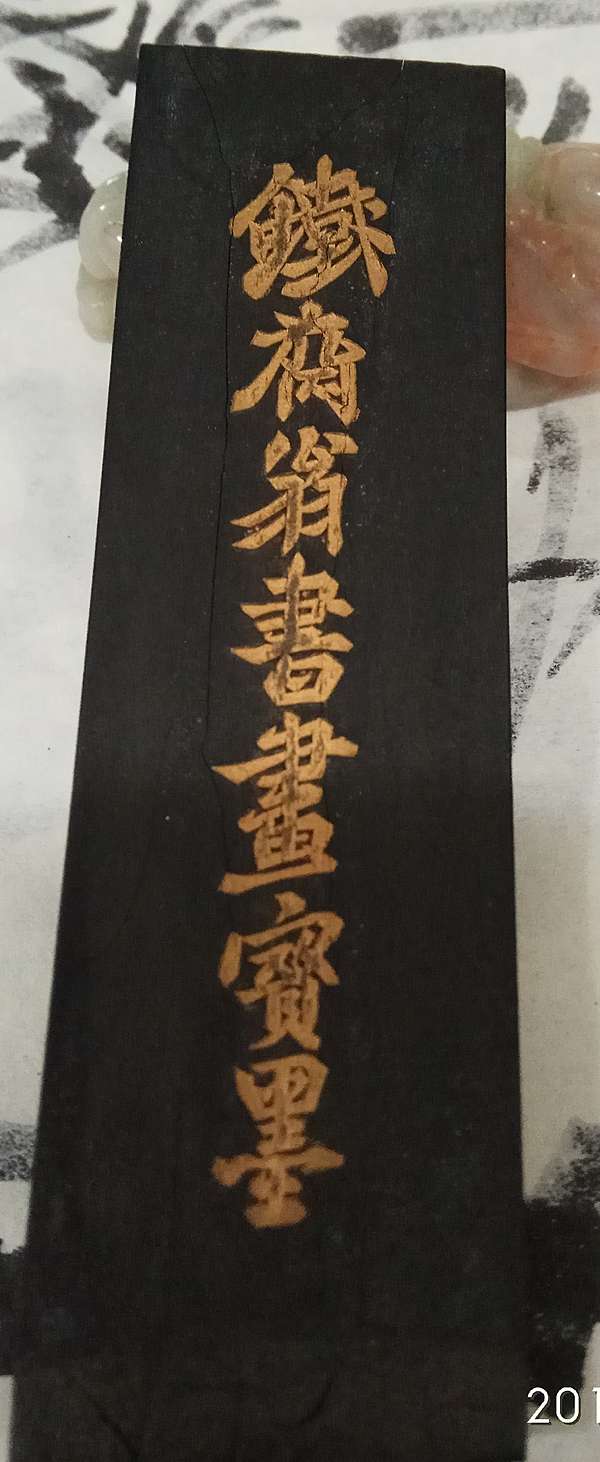 鐵斎翁書畫寳墨
201